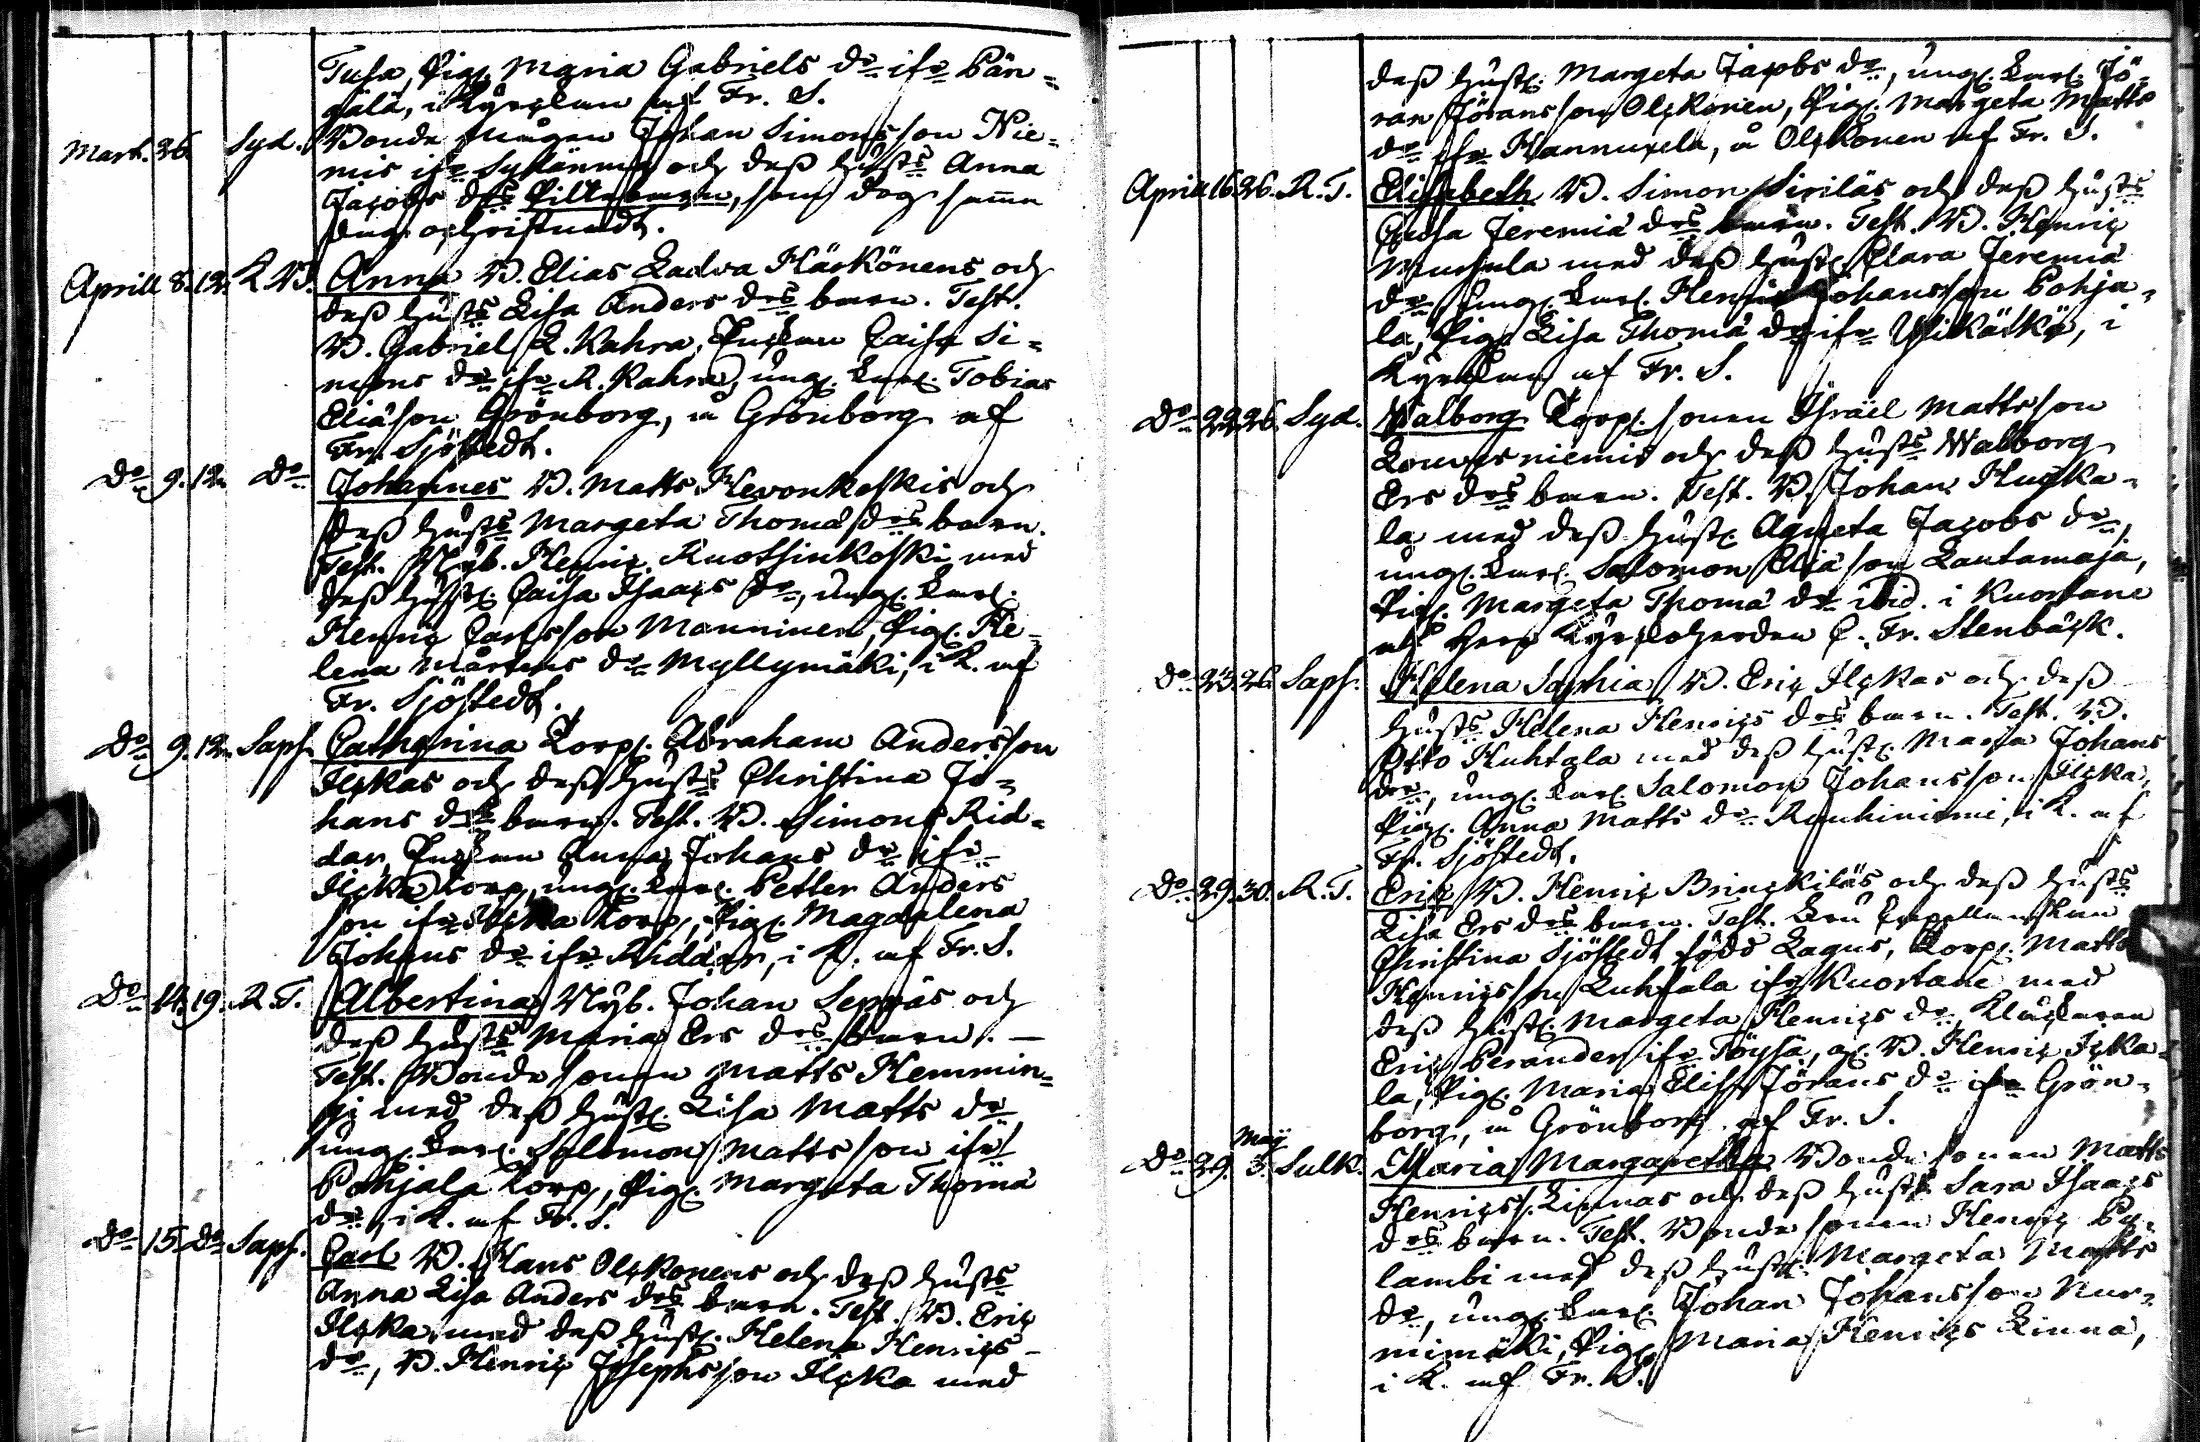 Tusa, Pig. Maria Gabriels dr ifr Pän-
gälä, i Kyrckan af Fr. S.
Mart. 26. Syd. Bonde mågen Johan Simonsson Nie-
mis ifr Sydänma och dess hustrs Anna
Jacobs drs Pillebarn, som dog samma
dag ochristnadt.
Aprill 8. 12. K.B. Anna B. Elias Ladva Härkönens och
dess hustrs Lisa Anders drs barn. Test.
B. Gabriel L. Rahra, Enckan Caisa Si-
mons dr ifr R. Rahra, ung. Karl. Tobias
Eliäson Grönborg, å Grönborg af
Fr. Sjöstedt.
Do 9. 12. Do Johannes B. Matts Hevonkoskis och
dess hustrs Margeta Thomä drs barn.
Test. Nyb. Henric Ruotsinkoski med
dess hustr. Caisa Isaacs dr, ung. Karl.
Henric Carlsson Manninen, Pig. He-
lena Mårtens dr Myllymäki, i K. af
Fr. Sjöstedt.
Do 9. 12. Saph. Catharina Torp. Abraham Andersson
Ilckas och dess hustrs Christina Jo-
hans drs barn. Test. B. Simons Rid-
dar, Enckan Anna Johans dr ifr
Ilcka Torp, ung. Karl. Petter Anders
son ifr Ilcka Torp, Pig. Magdalena
Johans dr ifr Riddar, i K. af Fr. S.
Do 14. 19. R.T. Albertina Nyb. Johan Seppäs och
dess hustrs Maria Ers drs barn. —
Test. Bonde sonen Matts Hemmin-
gi med dess hustr. Lisa Matts dr
ung. Karl. Salomon Mattsson ifr
Pohjala Torp, Pig. Margeta Thomä
dr, i K. af Fr. S.
Do 15. Do Saph. Carl B. Hans Olckonens och dess hustrs
Anna Lisa Anders drs barn. Test. B. Eric
Ilcka med dess hustr. Helena Henrics
dr, B. Henric Josephsson Ilcka med
dess hustr. Margeta Jacobs dr, ung. Karl. Jö-
ran Jöransson Olckonen, Pig. Margeta Matts
dr ifr Hannuxela, å Olckonen af Fr. S.
Aprill 16. 26. R.T. Elisabeth B. Simon Siriläs och dess hustrs
Caisa Jeremiä drs barn. Test. B. Henric
med dess hustr. Clara Jeremiä
dr, ung. Karl. Henric Johansson Pohja-
la, Pig. Lisa Thomä dr ifr Ylikätkä, i
Kyrckan af Fr. S.
Do 22. 26. Syd. Walborg Torp. sonen Israël Mattsson
niemis och dess hustrs Walborg
Ers drs barn. Test. B. Johan Hucka-
la med dess hustr. Agneta Jacobs dr,
ung. Karl. Salomon Eliä son Lautamaja,
Pig. Margeta Thomä dr ibid. i Kuortane
af Herr Kyrckoherden C. Fr. Stenbäck.
Do 25. 26. Saph. Helena Sophia B. Eric Ilckas och dess
hustrs Helena Henrics drs barn. Test. B.
Otto Huhtala med dess hustr. Maria Johans
dr, ung. Karl. Salomon Johansson Ilcka,
Pig. Anna Matts dr Rauhiniemi, i K. af
Fr. Sjöstedt.
Do 29. 30. R.T. Eric B. Henric Brinckiläs och dess hustrs
Lisa Ers drs barn. Test. Fru Capellanskan
Christina Sjöstedt född Lagus, Torp. Matts
Henricsson Luhtala ifr Kuortane med
dess hustr. Margeta Henrics dr, Klåckaren
Eric Perander ifr Töysä, B. Henric Icka-
la, Pig. Maria Elisa Jörans dr ifr Grön-
borg, å Grönborg af Fr. S.
Do 29. Maij 3. Sulk. Maria Margaretha Bonde sonen Matts
Henrics. Linnas och dess hustrs Sara Isaacs
drs barn. Test. Bonde sonen Henric Py-
lambi med dess hustr. Margeta Matts
dr, ung. Karl. Johan Johansson Nur-
mimäki, Pig. Maria Henrics Linna,
i K. af Fr. S.